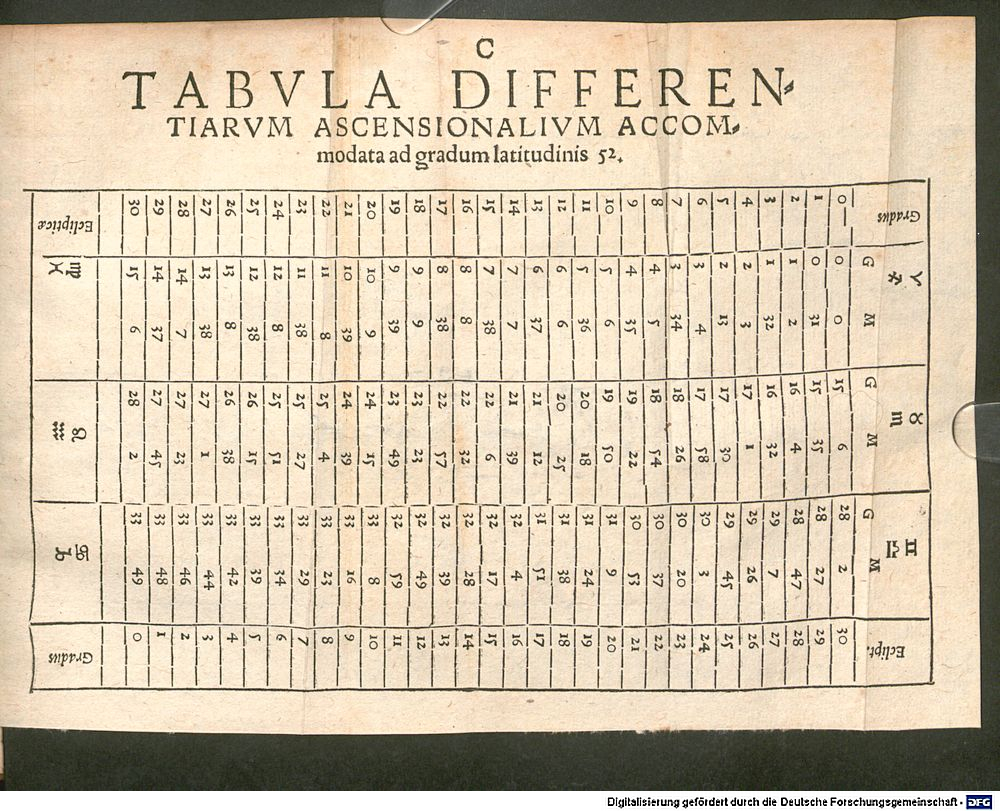 C
TABVLA DIFFEREN⸗
TIARVM ASCENSIONALIVM ACCOM⸗
modata ad gradum latitudinis 52.
Gradus ♈ ♎ ♉ ♏ ♊ ♐ Eclipt.
G M G M G M
0 0 0 15 6 28 2 30
1 0 31 15 35 28 27 29
2 1 2 16 4 28 47 28
3 1 32 16 32 29 7 27
4 2 3 17 1 29 26 26
5 2 13 17 30 29 45 25
6 3 4 17 58 30 3 24
7 3 34 18 26 30 20 23
8 4 5 18 54 30 37 22
9 4 35 19 22 30 53 21
10 5 6 19 50 31 9 20
11 5 36 20 18 31 24 19
12 6 6 20 25 31 38 18
13 6 37 21 12 31 51 17
14 7 7 21 39 32 4 16
15 7 38 22 6 32 17 15
16 8 8 22 32 32 28 14
17 8 38 22 57 32 39 13
18 9 9 23 23 32 49 12
19 9 39 23 49 32 59 11
20 10 9 24 15 33 8 10
21 10 39 24 39 33 16 9
22 11 8 25 4 33 23 8
23 11 38 25 27 33 29 7
24 12 8 25 51 33 34 6
25 12 38 26 15 33 39 5
26 13 8 26 38 33 42 4
27 13 38 27 1 33 44 3
28 14 7 27 23 33 46 2
29 14 37 27 45 33 48 1
30 15 6 28 2 33 49 0
Eclipticæ ♍ ♓ ♌ ♒ ♋ ♑ Gradus
Digitalisierung gefördert durch die Deutsche Forschungsgemeinschaft - DFG